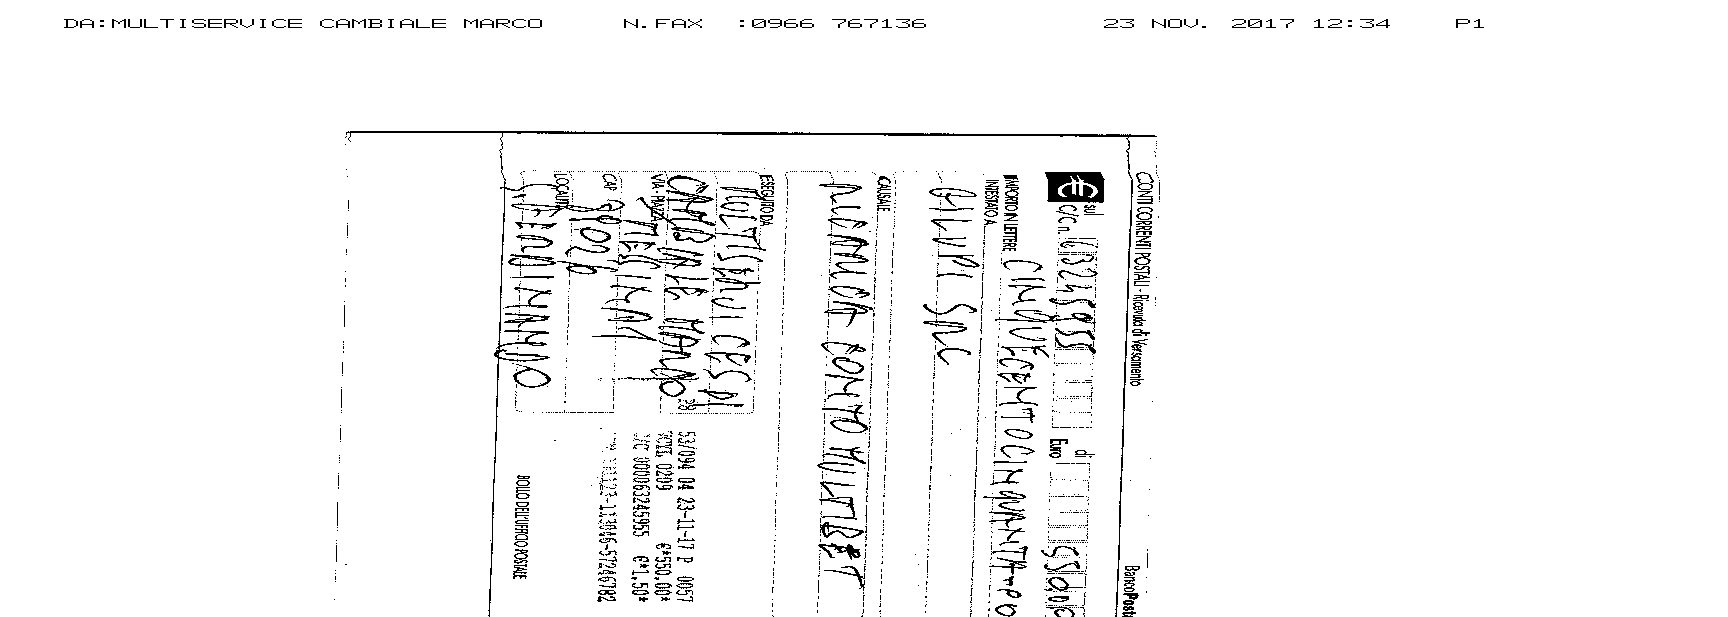 DA:MULTISERVICE CAMBIALE MARCO N.FAX :0966 767136 23 NOV. 2017 12:34 P1
CONTI CORRENTI POSTALI - Ricevuta di Versamento BancoPosta
€ sul C/C n. 63245955 di Euro 550,00
IMPORTO IN LETTERE CINQUECENTOCINQUANTA
INTESTATO A
GILUPI SNC
CAUSALE
RICARICA CONTO MULTIBET
ESEGUITO DA
MULTISERVICES DI
CAMBIALE MARCO
VIA - PIAZZA
CAP 89026
LOCALITÀ
S. FERDINANDO
53/094 04 23-11-17 P 0057
0209 €*550,00*
C/C 000063245955 €*1,50*
BOLLO DELL'UFFICIO POSTALE